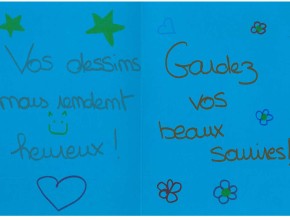 Vos dessins
nous rendent
heureux !
Gardez
vos
beaux
sourires !